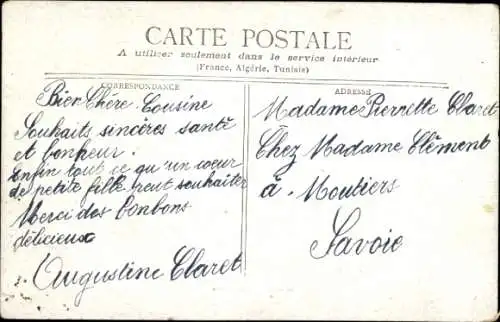 CARTE POSTALE
A utiliser seulement dans le service intérieur
(France, Algérie, Tunisie)
CORRESPONDANCE
Bien Chère Cousine
Souhaits sincères santé
et bonheur.
Enfin tout ce qu'un cœur
de petite fille peut souhaiter
Merci des bonbons
délicieux
Augustine Claret
ADRESSE
Madame Pierrette Claret
Chez Madame Clément
à Moutiers
Savoie